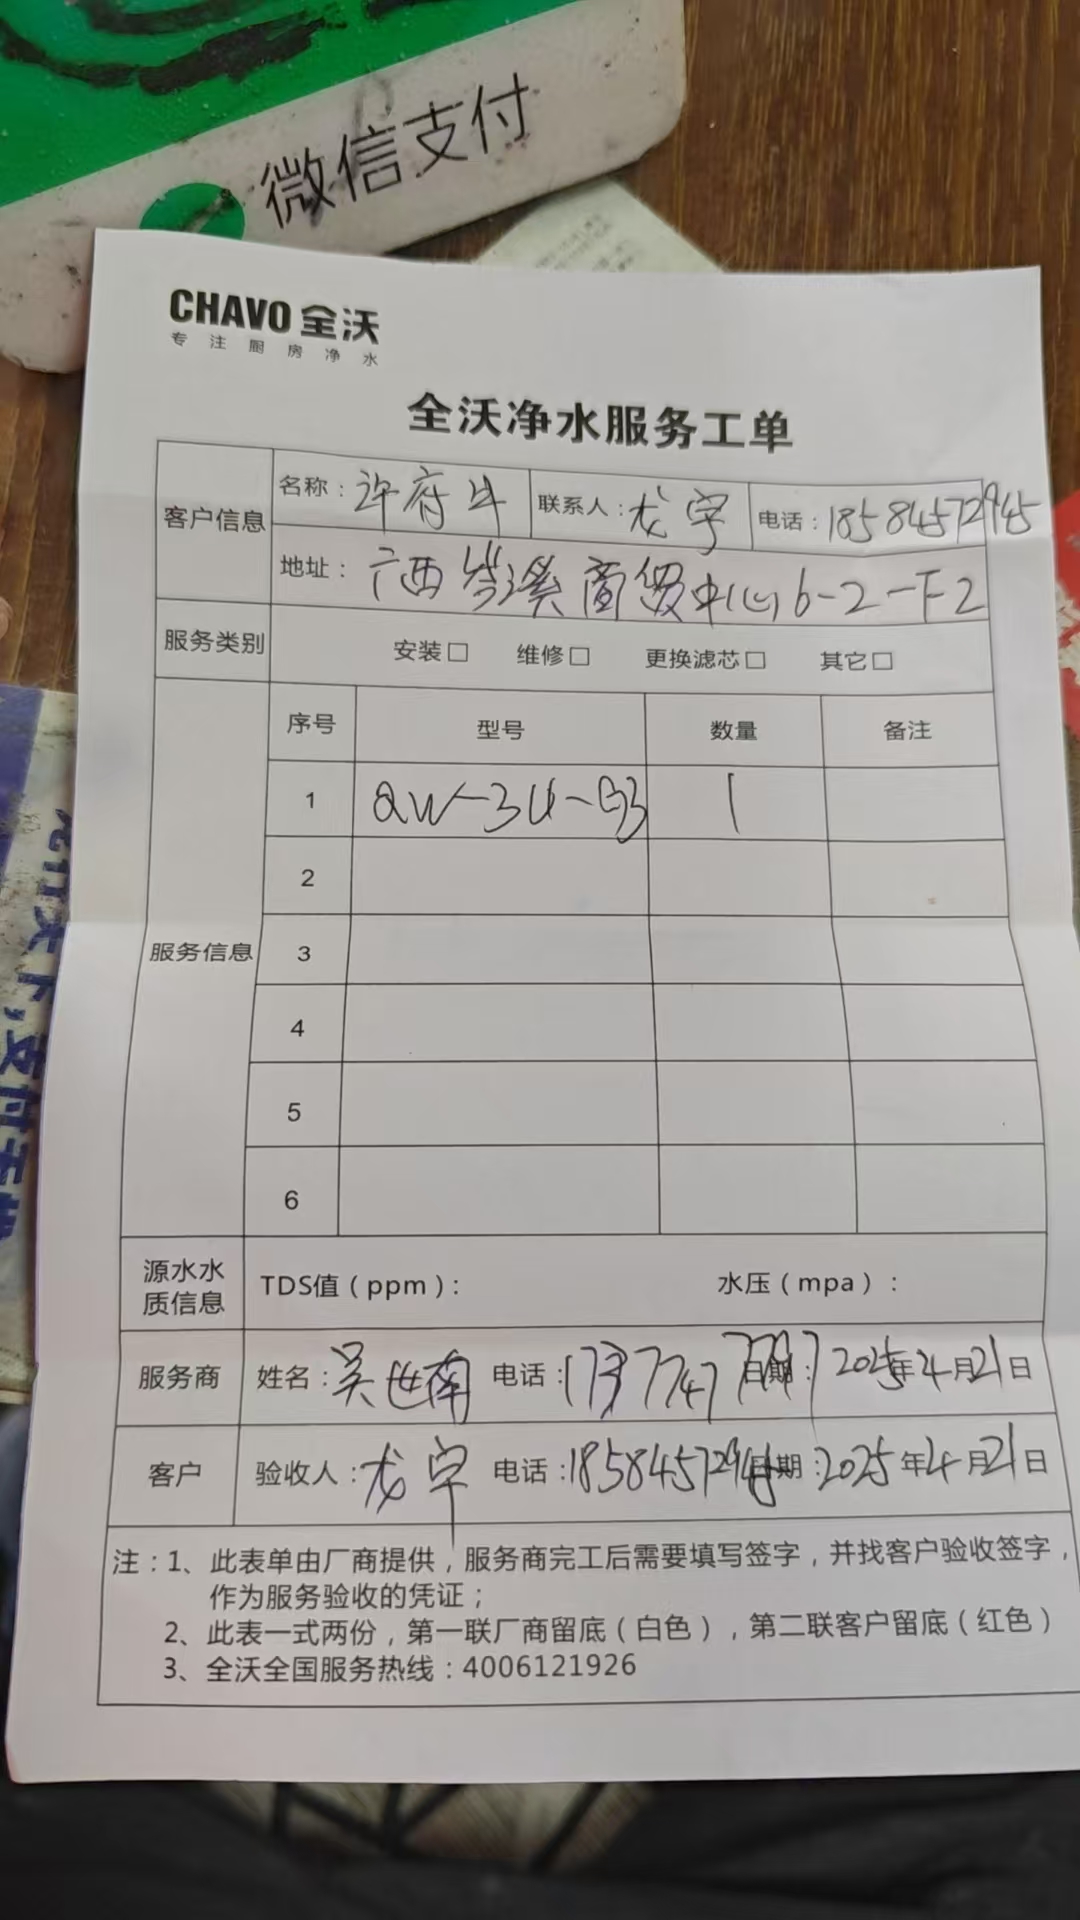 微信支付
CHAVO 全沃
专注厨房净水
全沃净水服务工单
客户信息 名称：许府牛 联系人：龙宇 电话：18584572945
地址：广西岑溪商贸中心6-2-F2
服务类别 安装□ 维修□ 更换滤芯□ 其它□
服务信息 序号 型号 数量 备注
1 QW-3U-B3 1
2
3
4
5
6
源水水质信息 TDS值（ppm）： 水压（mpa）：
服务商 姓名：吴世南 电话： 日期：2025年4月21日
客户 验收人：龙宇 电话：18584572945 日期：2025年4月21日
注：1、此表单由厂商提供，服务商完工后需要填写签字，并找客户验收签字，
作为服务验收的凭证；
2、此表一式两份，第一联厂商留底（白色），第二联客户留底（红色）
3、全沃全国服务热线：4006121926